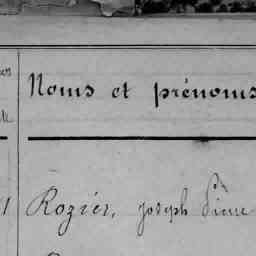 Noms et prénoms
1 Rozier, Joseph Pierre